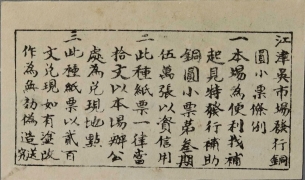 江津吳市場發行銅
圓小票條例
一本場為便利找補
起見特發行補助
銅圓小票第叁期
伍萬張以資信用
二此種紙票一律當
拾文以本場辦公
處為兌現地點
三此種紙票以貳百
文兌現如有塗改
作為無効偽造究